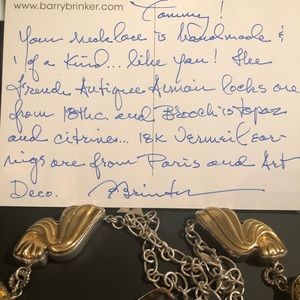 www.barrybrinker.com
Tammy!
Your necklace is handmade &
1 of a kind... like you! The
French Antique Armoir locks are
from 18thc. and Brooch is topaz
and citrines... 18K Vermeil ear-
rings are from Paris and Art
Deco. Brinker